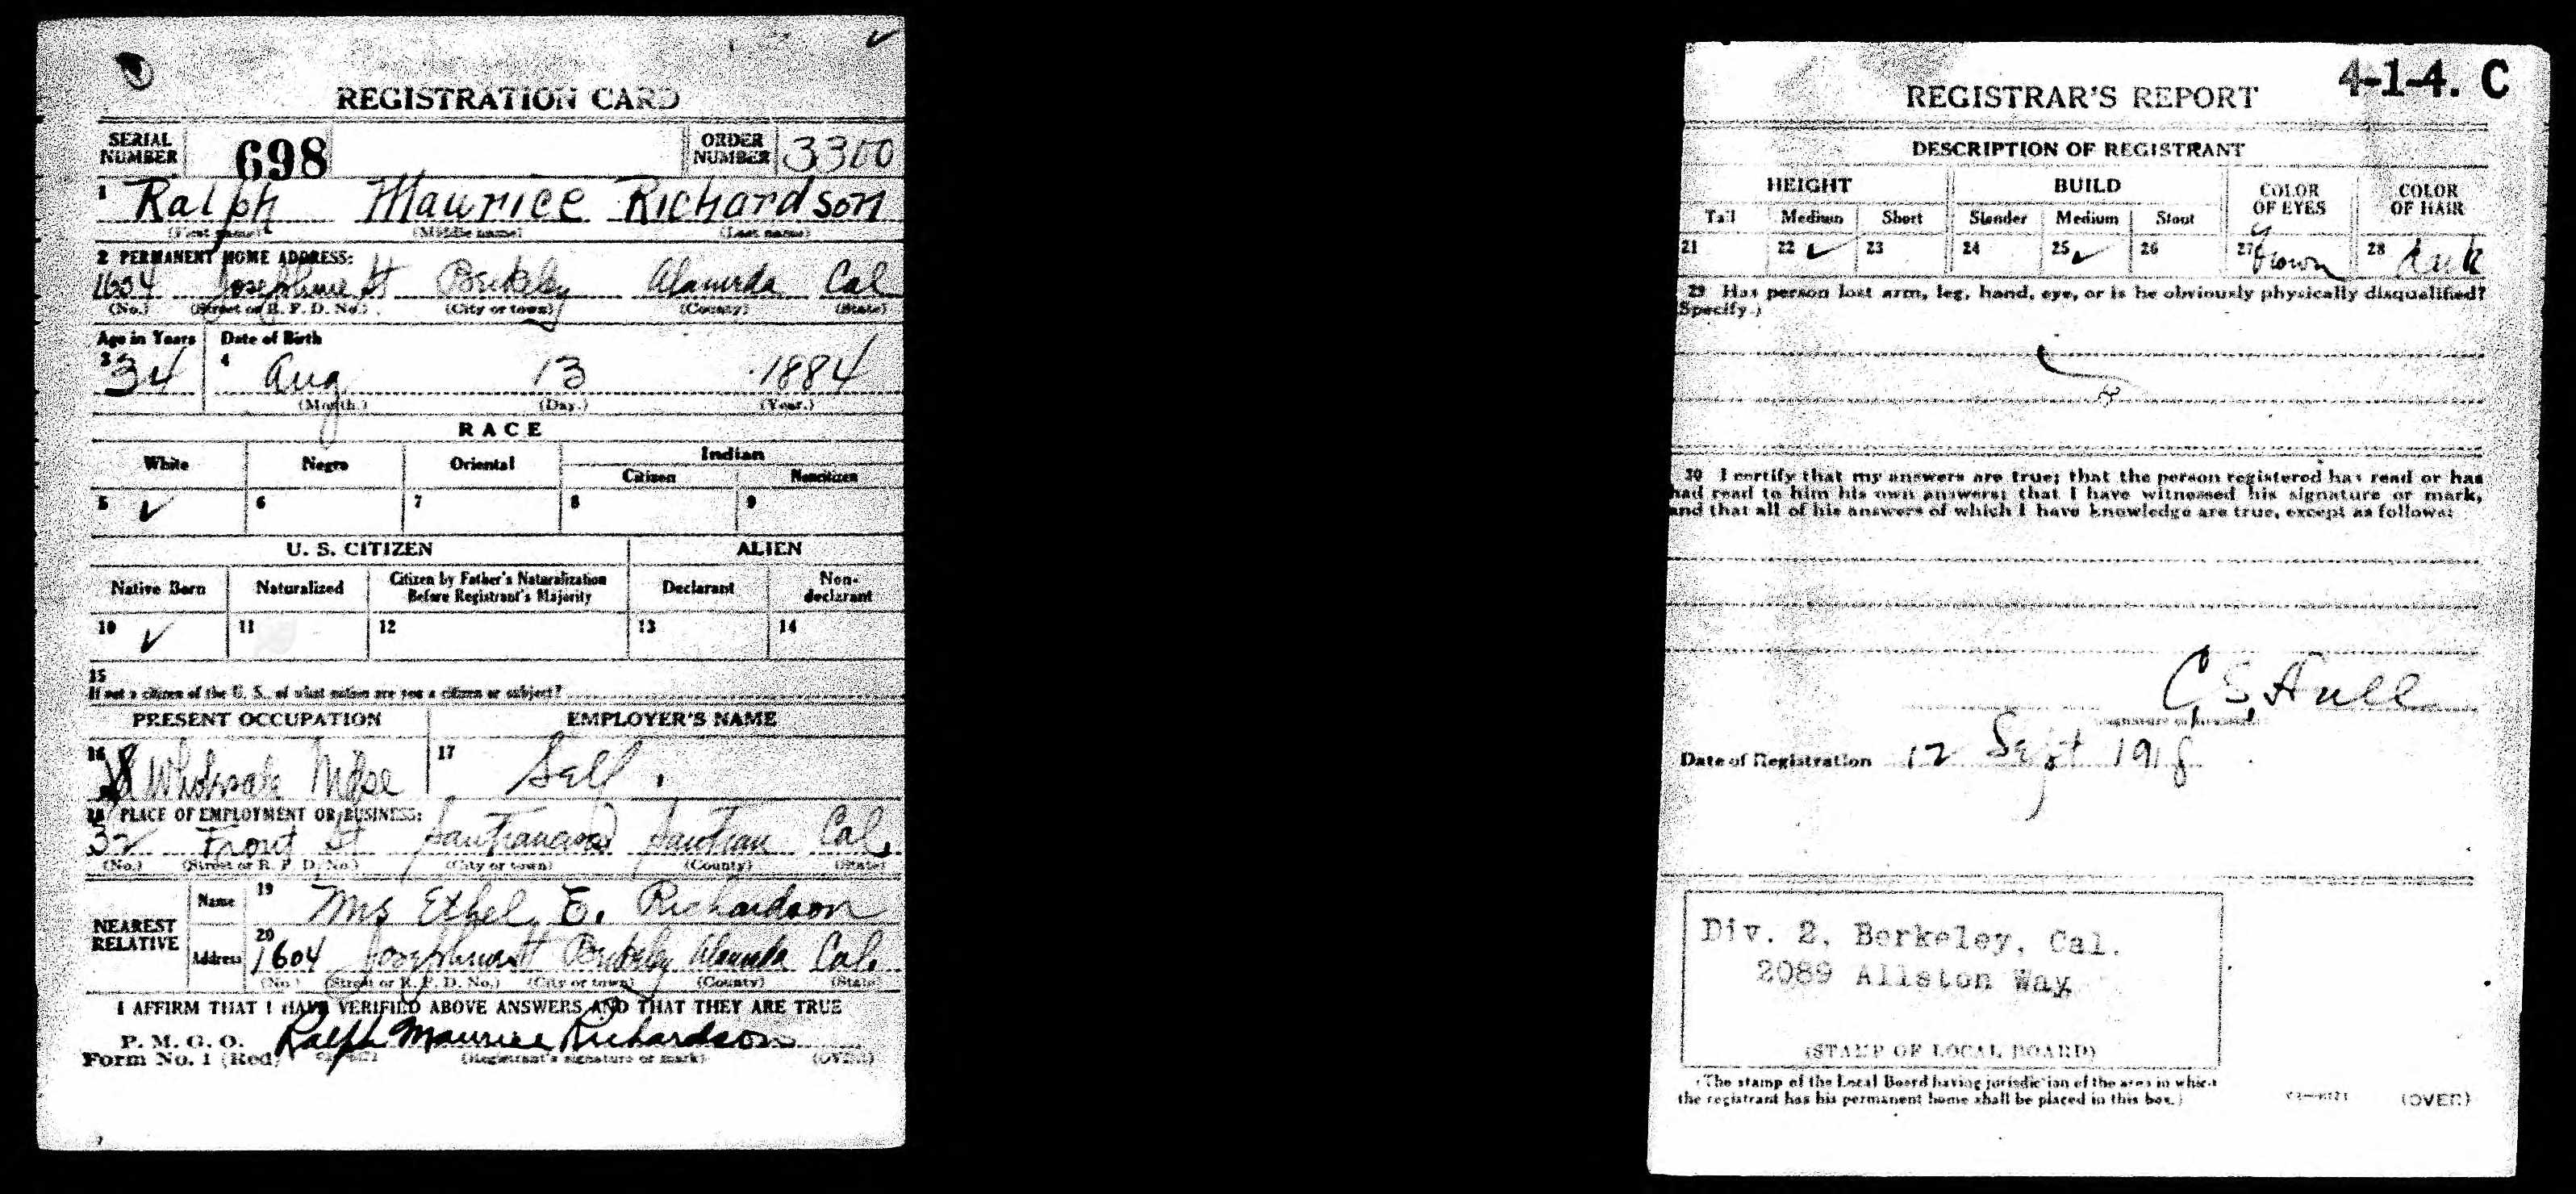 REGISTRATION CARD
SERIAL NUMBER 698 ORDER NUMBER 3300
1 Ralph Maurice Richardson
(First name) (Middle name) (Last name)
2 PERMANENT HOME ADDRESS:
1604 Josephine St Berkeley Alameda Cal
(No.) (Street or R. F. D. No.) (City or town) (County) (State)
Age in Years Date of Birth
3 34 4 Aug 13 1884
(Month.) (Day.) (Year.)
RACE
White Negro Oriental Indian
Citizen Noncitizen
5 ✓ 6 7 8 9
U. S. CITIZEN ALIEN
Native Born Naturalized Citizen by Father's Naturalization Before Registrant's Majority Declarant Non-declarant
10 ✓ 11 12 13 14
15
If not a citizen of the U. S., of what nation are you a citizen or subject?
PRESENT OCCUPATION EMPLOYER'S NAME
16 Wholesale Mdse 17 Self.
18 PLACE OF EMPLOYMENT OR BUSINESS:
32 Front St San Francisco San Fran Cal.
(No.) (Street or R. F. D. No.) (City or town) (County) (State)
NEAREST RELATIVE
Name 19 Mrs Ethel E. Richardson
Address 20 1604 Josephine St Berkeley Alameda Cal.
(No.) (Street or R. F. D. No.) (City or town) (County) (State)
I AFFIRM THAT I HAVE VERIFIED ABOVE ANSWERS AND THAT THEY ARE TRUE
P. M. G. O.
Form No. 1 (Red) Ralph Maurice Richardson
(Registrant's signature or mark) (OVER)
4-1-4. C
REGISTRAR'S REPORT
DESCRIPTION OF REGISTRANT
HEIGHT BUILD COLOR OF EYES COLOR OF HAIR
Tall Medium Short Slender Medium Stout
21 22 ✓ 23 24 25 ✓ 26 27 Brown 28 Dark
29 Has person lost arm, leg, hand, eye, or is he obviously physically disqualified?
(Specify.)
30 I certify that my answers are true; that the person registered has read or has
had read to him his own answers; that I have witnessed his signature or mark,
and that all of his answers of which I have knowledge are true, except as follows:
C. S. Hull
(Signature of Registrar)
Date of Registration 12 Sept 1918
Div. 2, Berkeley, Cal.
2089 Allston Way
(STAMP OF LOCAL BOARD)
(The stamp of the Local Board having jurisdiction of the area in which
the registrant has his permanent home shall be placed in this box.)
(OVER)